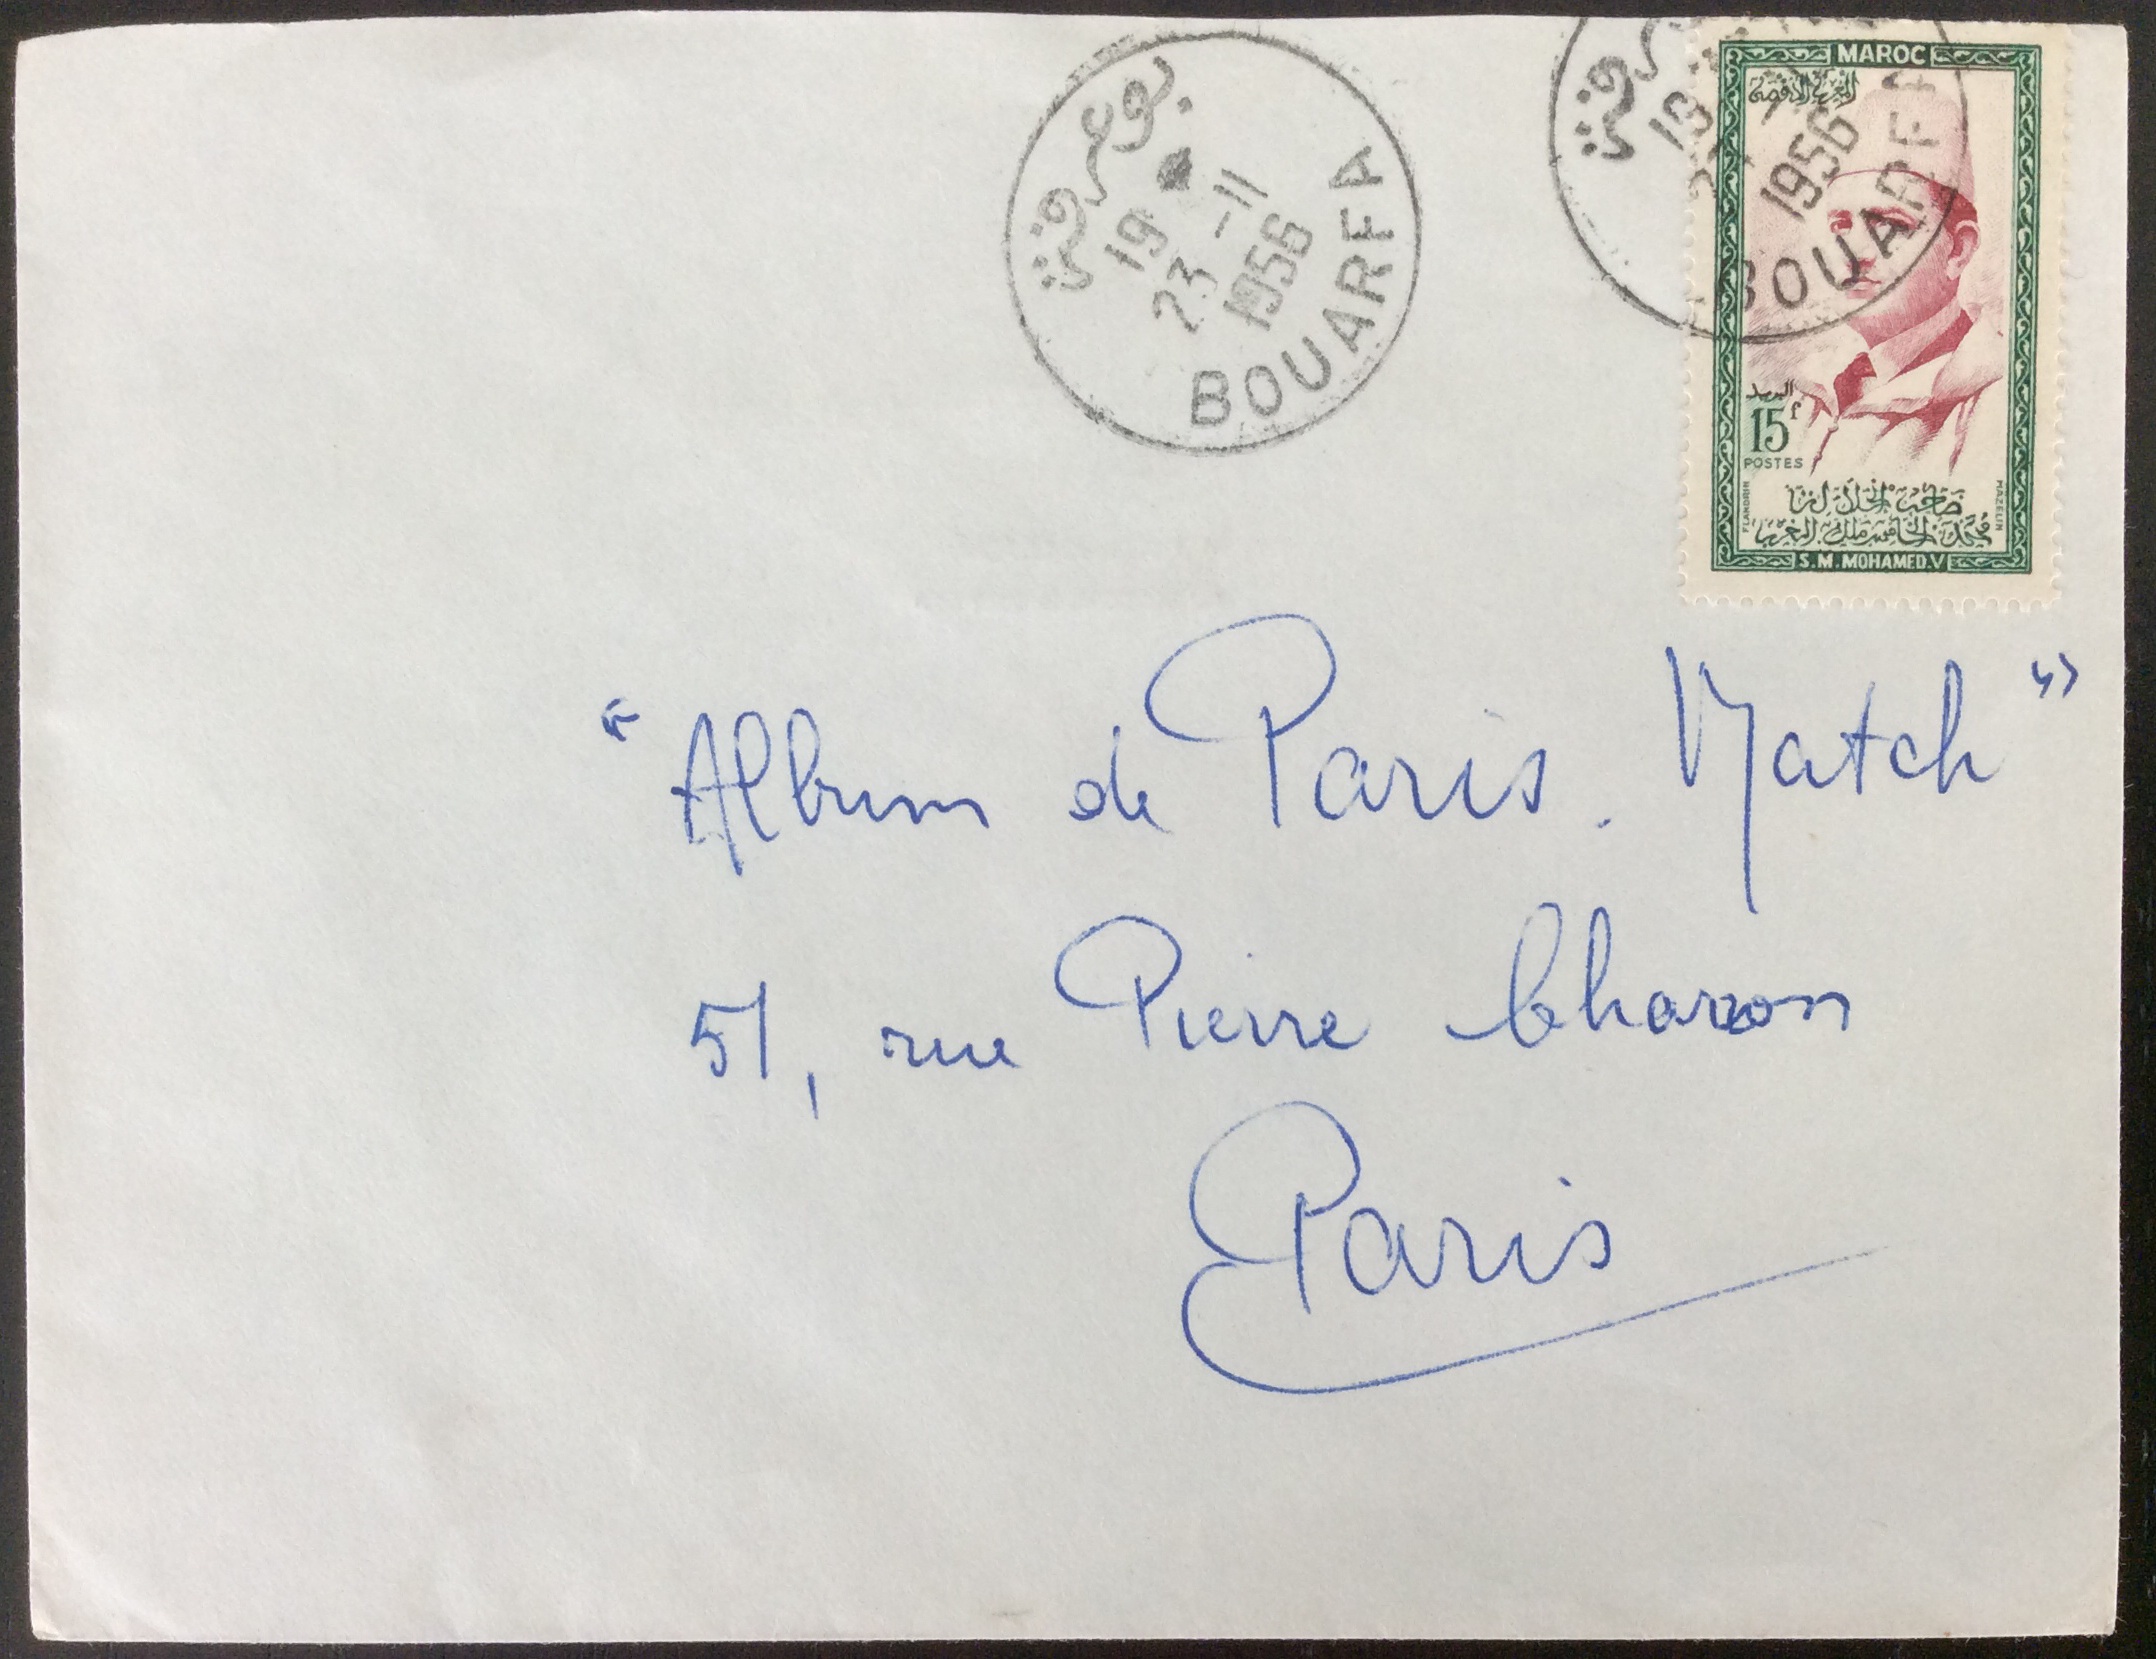 بوعرفة
19
23 -11
1956
BOUARFA
19
1956
BOUARFA
MAROC
البريد
15f
POSTES
FLANDRIN
MAZELIN
صاحب الجلالة
محمد الخامس ملك المغرب
S.M. MOHAMED.V
"Album de Paris. Match"
51, rue Pierre Charron
Paris